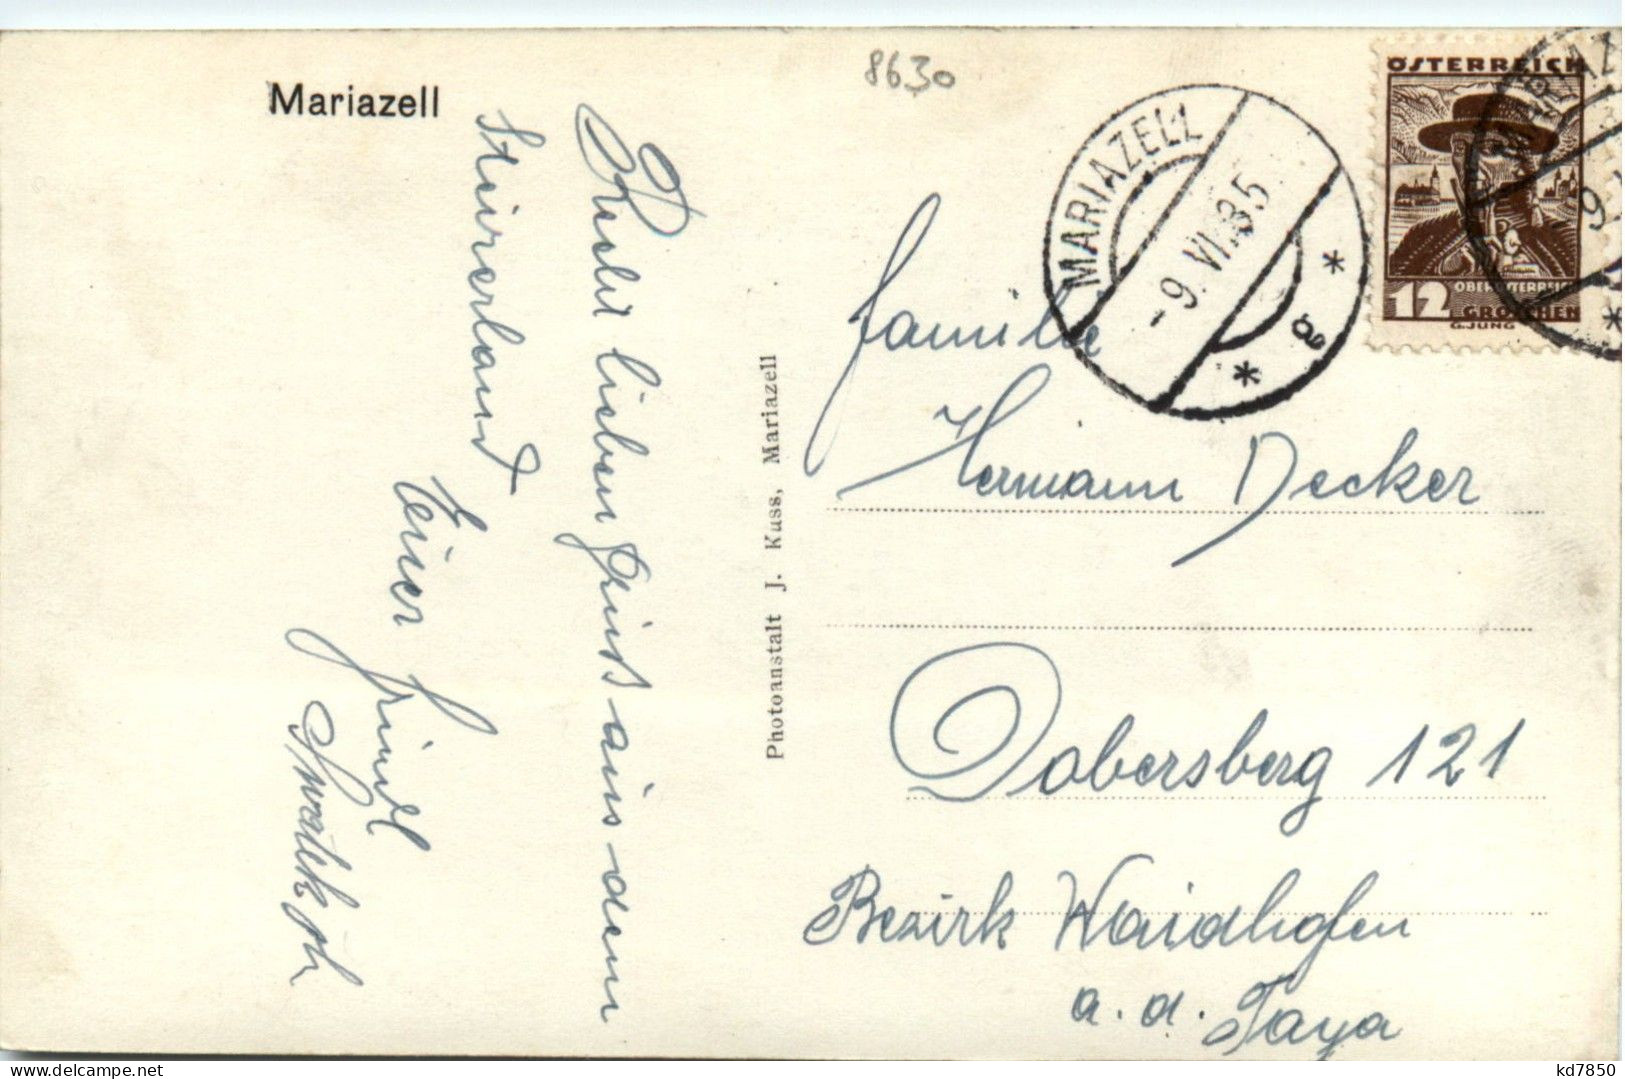 8630
Mariazell
ÖSTERREICH
12
OBERÖSTERREICH
GROSCHEN
G.JUNG
MARIAZELL
-9.VI.35
* a *
Recht lieben Gruß aus dem
Steirerland
Euer Freund
Photoanstalt J. Kuss, Mariazell
Familie
Hermann Decker
Dobersberg 121
Bezirk Waidhofen
a. d. Taya
kd7850